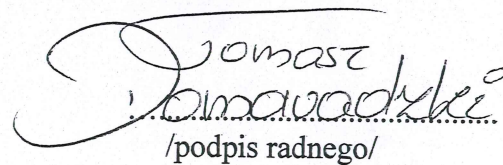 Tomasz
Domaradzki
/podpis radnego/